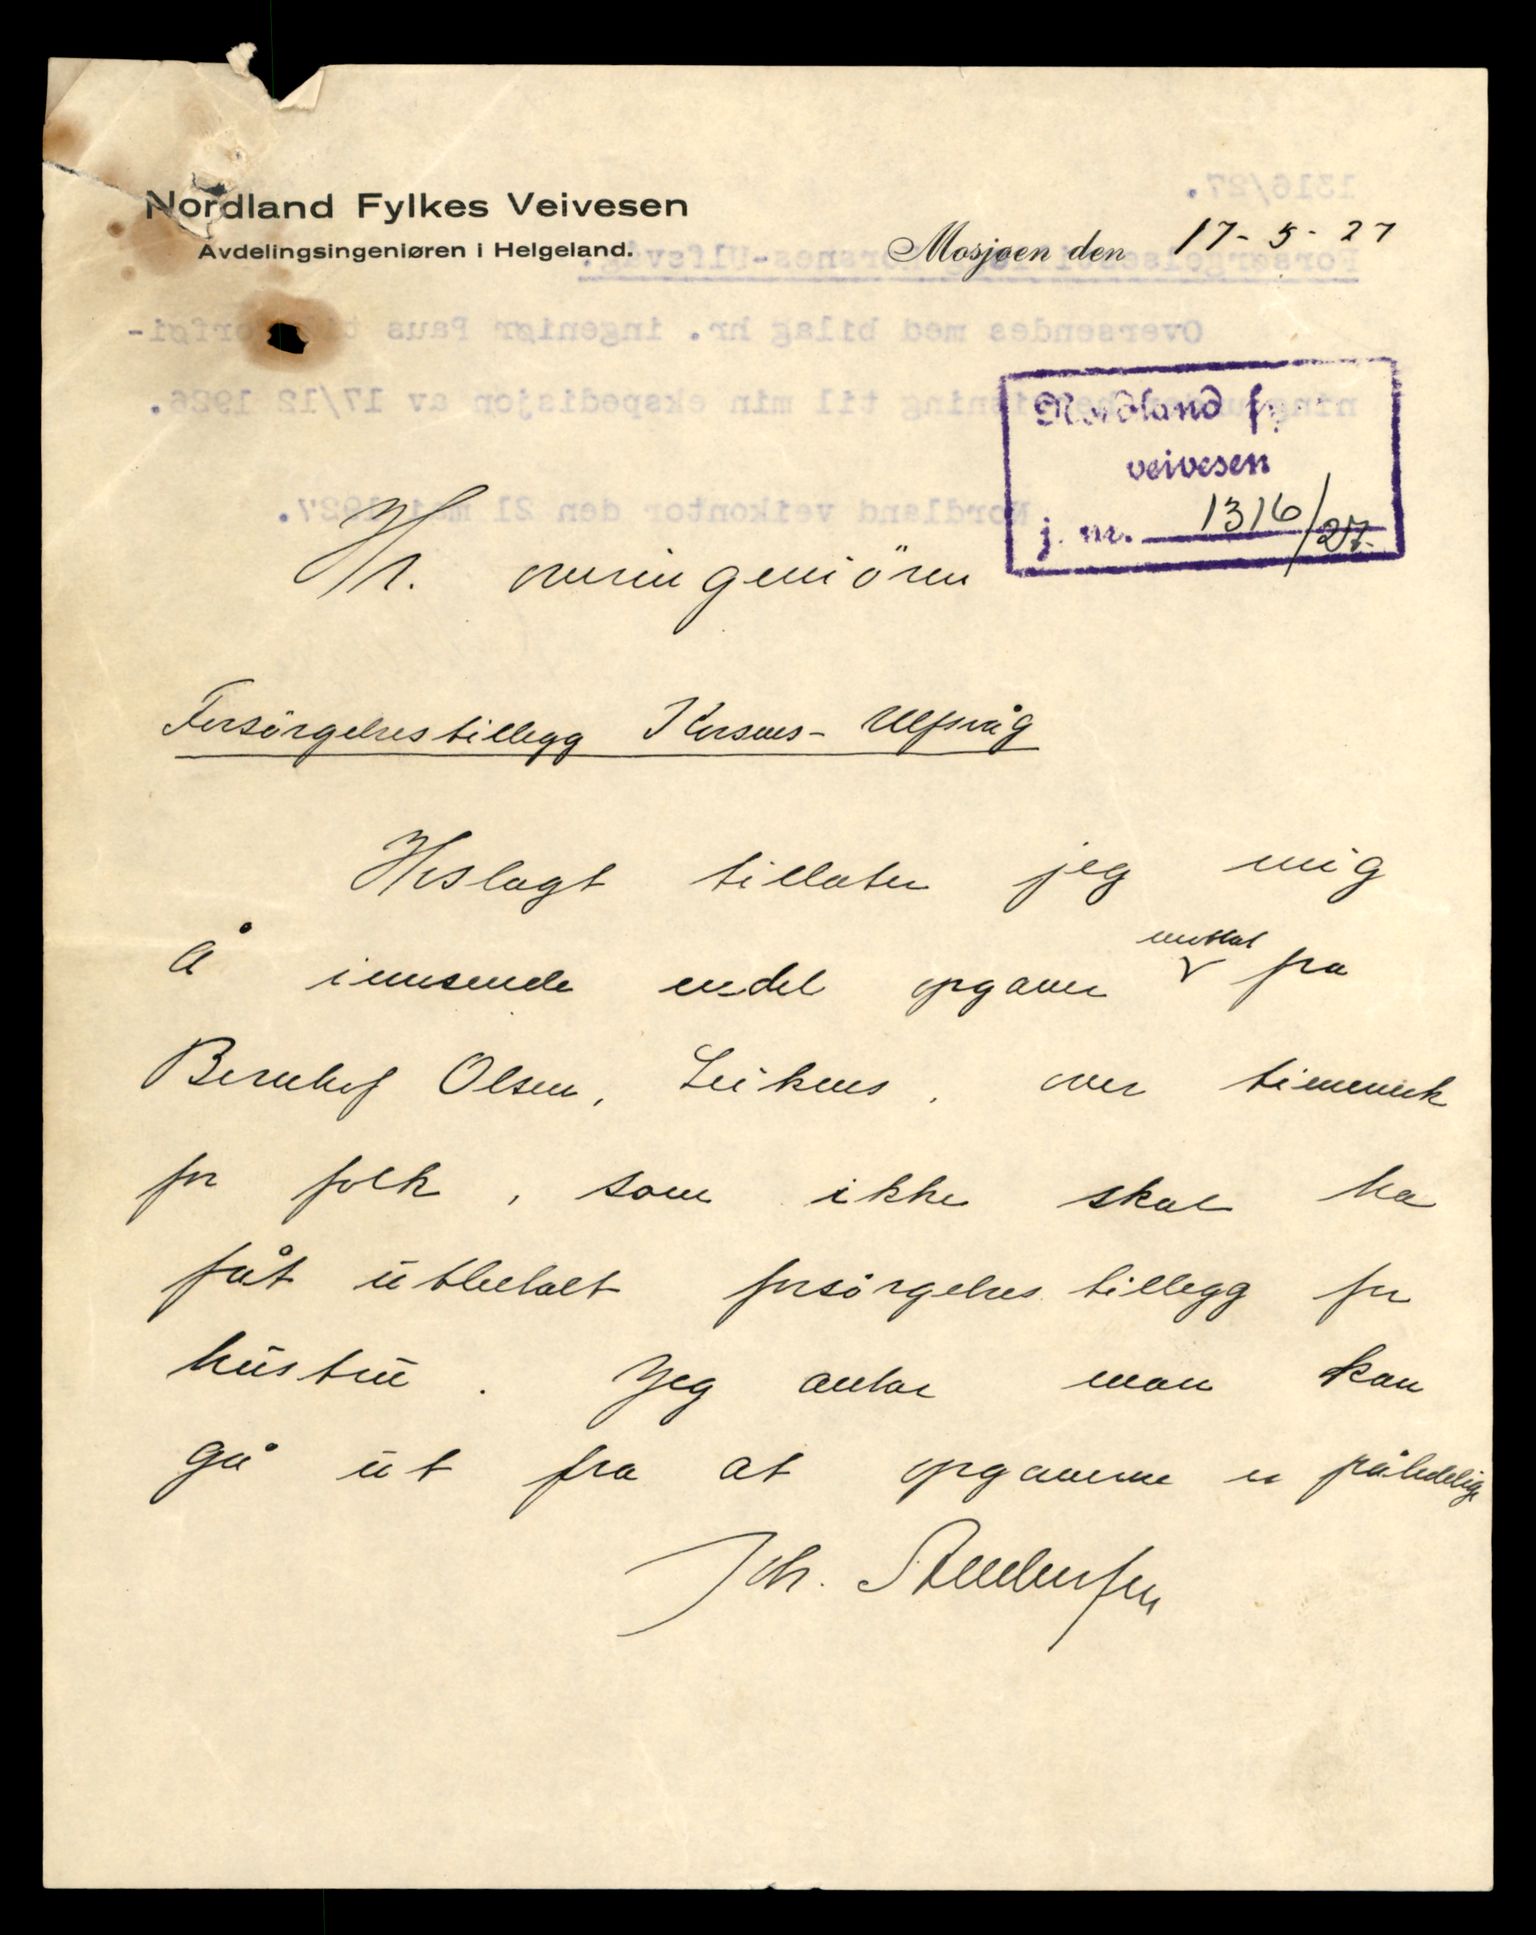 Nordland Fylkes Veivesen
Avdelingsingeniøren i Helgeland.
Mosjøen den 17-5-27
Nordland fy
veivesen
j. nr. 1316/27.
Hr. overingeniören
Forsörgelsestillegg Korsnes-Ulfsvåg
Heslagt tillater jeg mig
å innsende endel opgaver mottat fra
Bernhof Olsen, Leiknes, over timeverk
for folk, som ikke skal ha
fåt utbetalt forsörgelsestillegg for
hustru. Jeg antar man kan
gå ut fra at opgavene er pålidelige
Joh.
1316/27.
Forsørgelsestillegg Korsnes-Ulfsvåg.
Oversendes med bilag hr. ingeniør Paus til
ning til min ekspedisjon av 17/12 1926.
Nordland veikontor den 21 mai 1927.